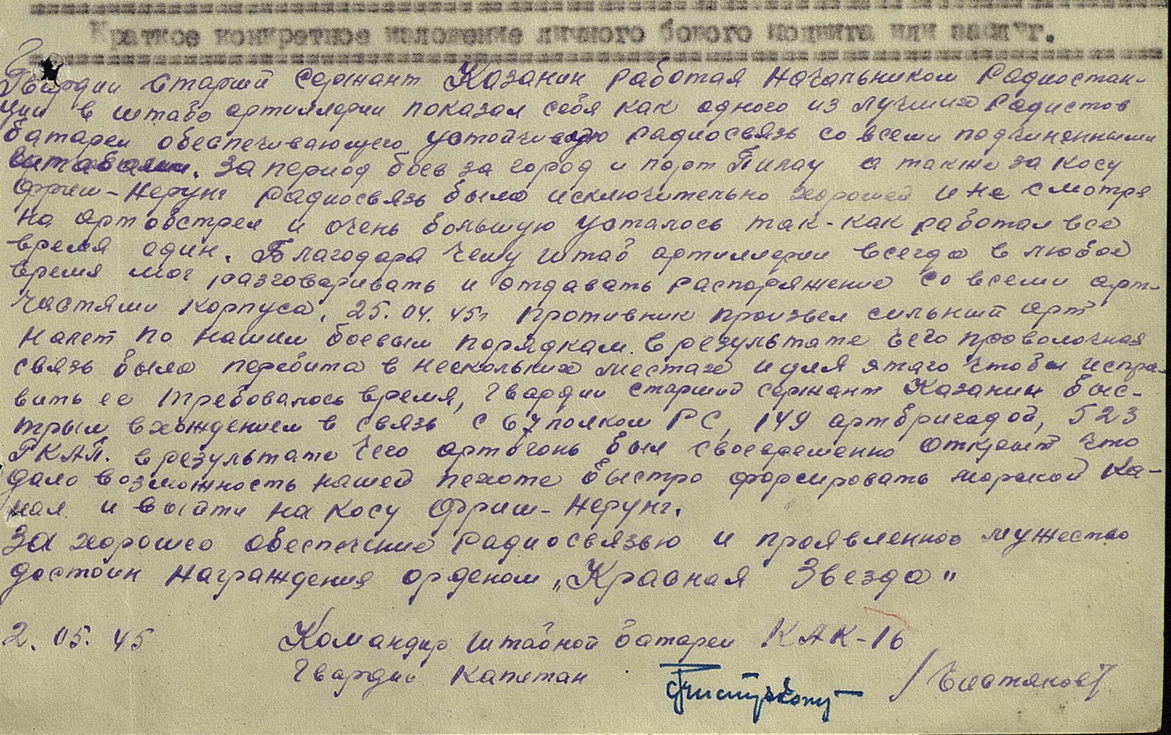 Краткое конкретное изложение личного боевого подвига или заслуг.
Гвардии Старший Сержант Казанин работая Начальником Радиостан-
ции в штабе артиллерии показал себя как одного из лучших радистов
батареи обеспечивающего устойчивую радиосвязь со всеми подчиненными
штабами. За период боев за город и порт Пилау а также за косу
Фриш-Нерунг радиосвязь была исключительно хорошей и не смотря
на артобстрел и очень большую усталось так-как работал все
время один. Благодоря чему штаб артиллерии всегда в любое
время мог разговаривать и отдавать распоряжение со всеми арт-
частями корпуса. 25.04.45г Противник произвел сильный арт
налет по нашим боевым порядкам. в результате чего проволочная
связь была перебита в нескольких местах и для этого чтобы испра-
вить ее требовалось время, Гвардии старший сержант Казанин быс-
трым вхождением в связь с 67 полком РС, 149 артбригадой, 523
ГКАП. в результате чего артогонь был своевременно открыт что
дало возможность нашей пехоте быстро форсировать морской ка-
нал и выйти на косу Фриш-Нерунг.
За хорошее обеспечение радиосвязью и проявленное мужество
достоин награждения орденом „Красная Звезда"
2.05.45 Командир штабной батареи КАК-16
Гвардии Капитан